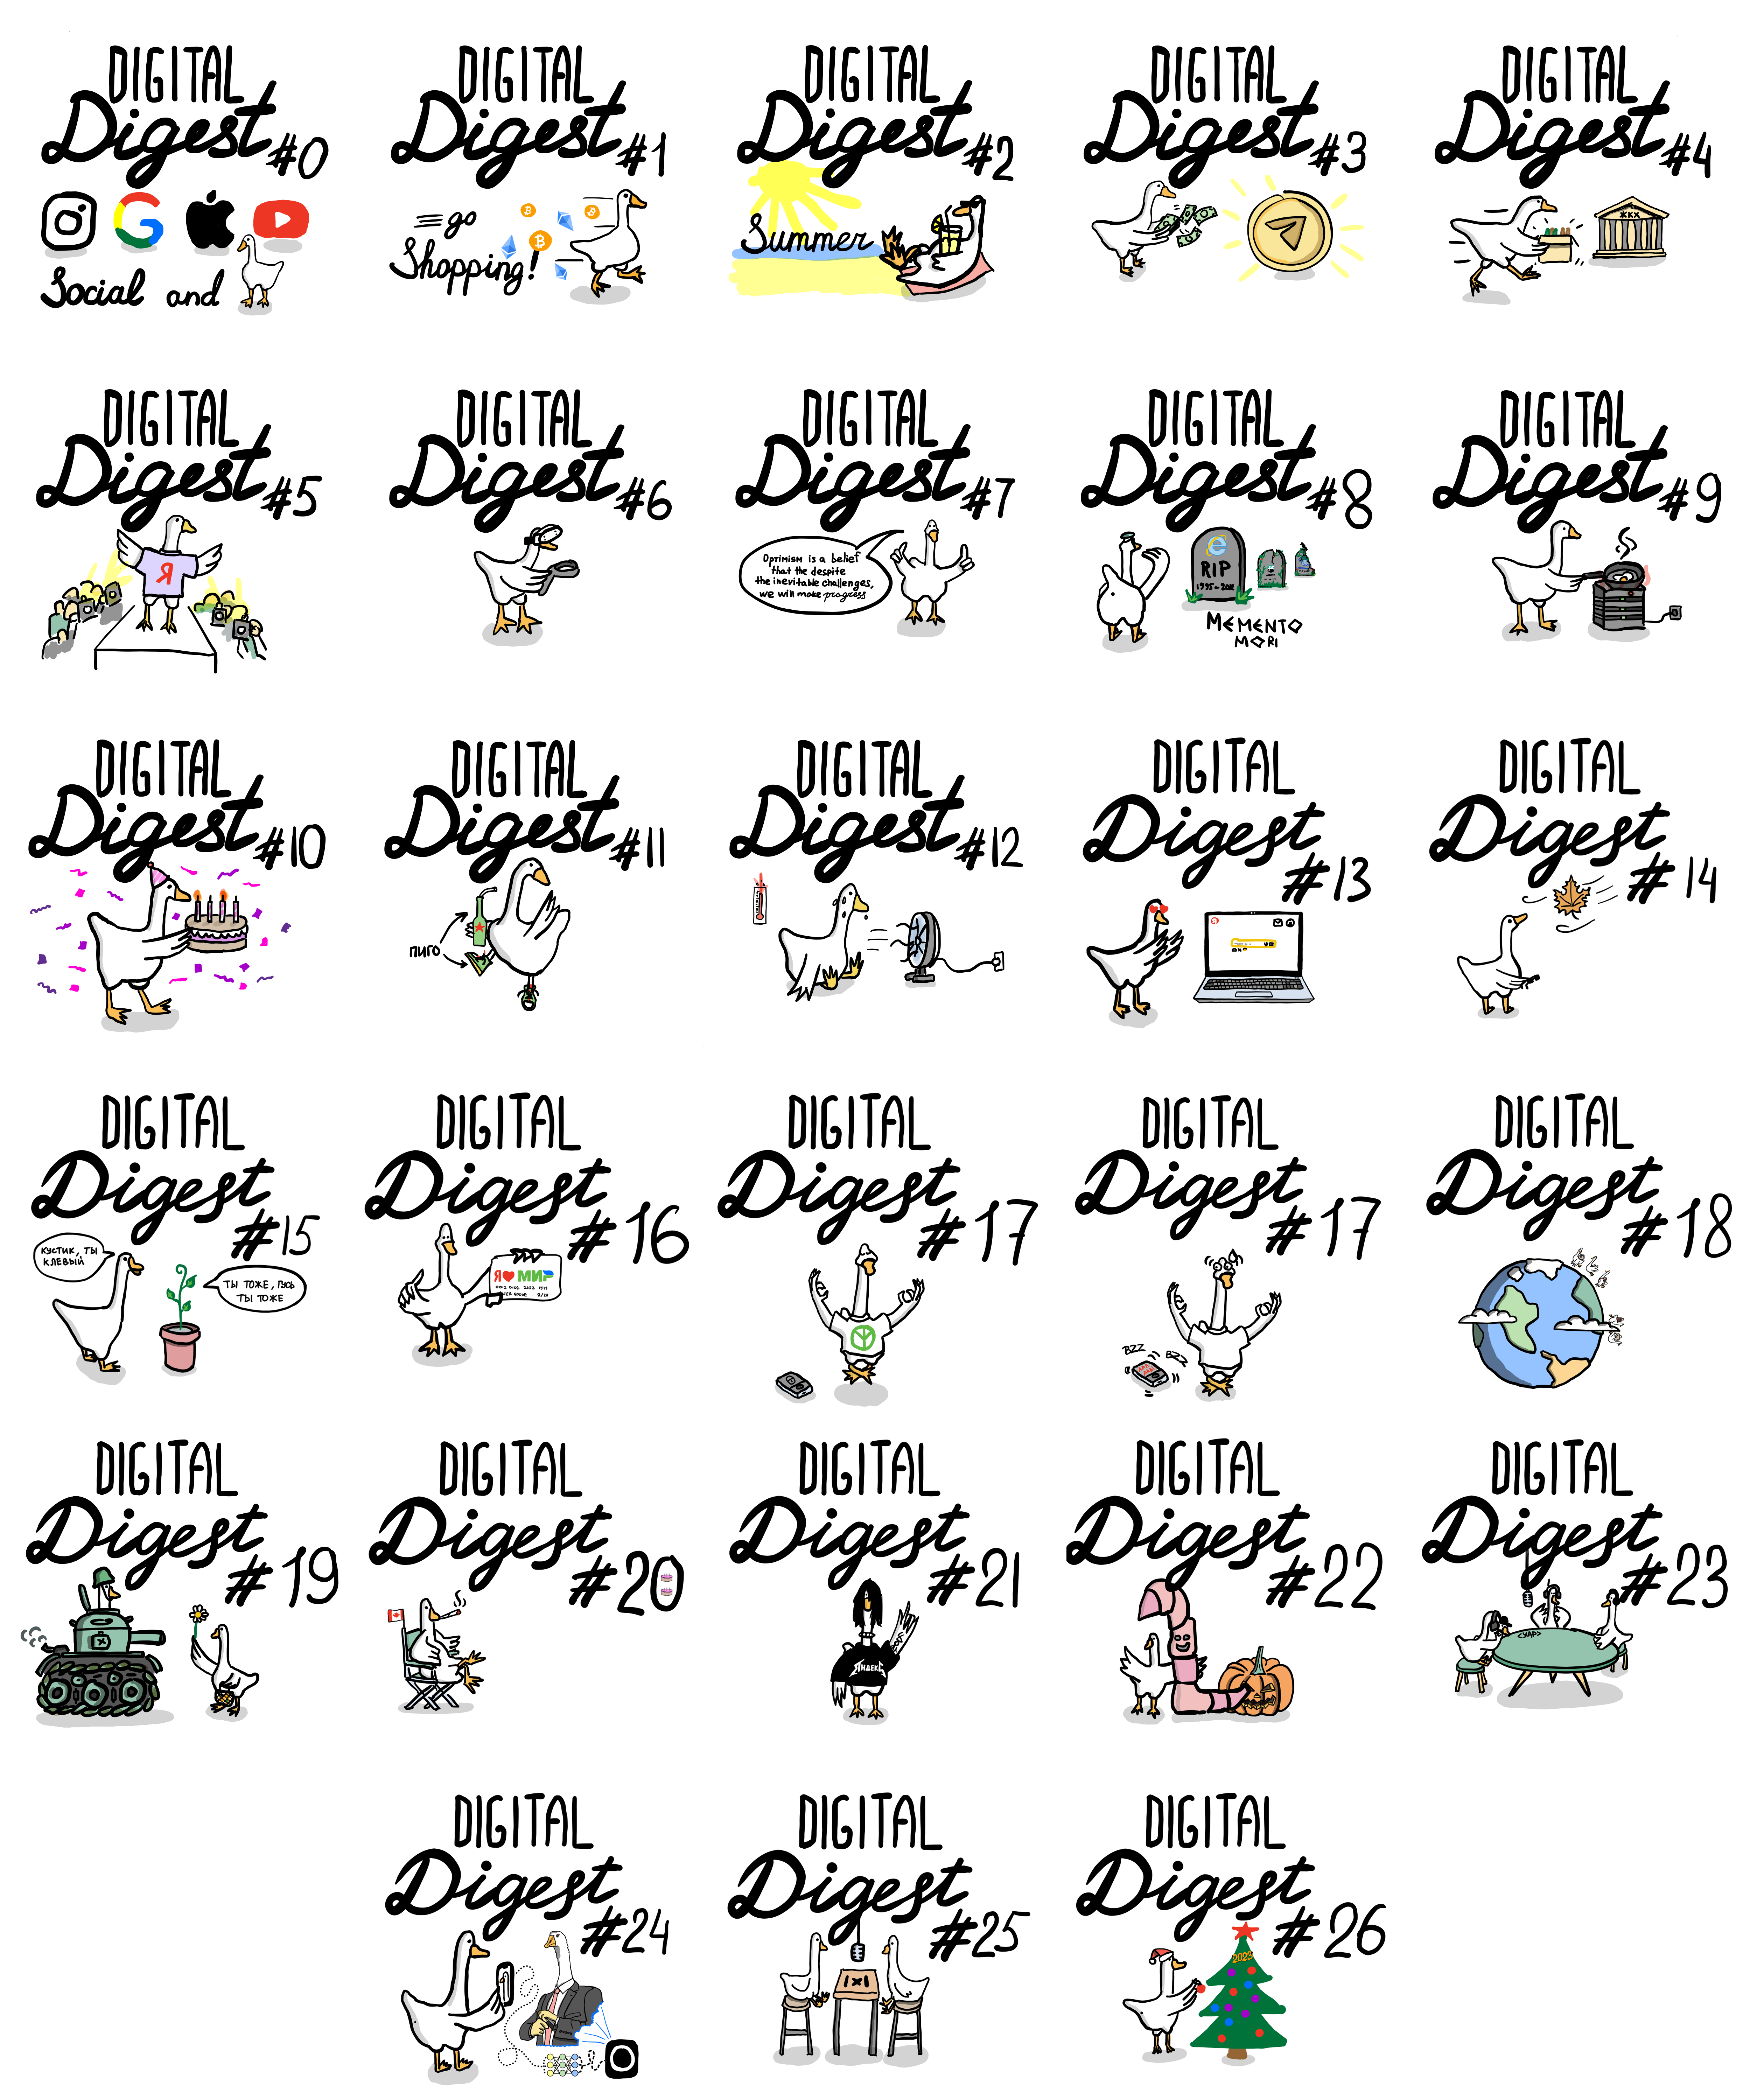 DIGITAL
Digest #0
Social and
DIGITAL
Digest #1
go
Shopping!
DIGITAL
Digest #2
Summer
DIGITAL
Digest #3
DIGITAL
Digest #4
ЖКХ
DIGITAL
Digest #5
Я
DIGITAL
Digest #6
DIGITAL
Digest #7
Optimism is a belief
that the despite
the inevitable challenges,
we will make progress
DIGITAL
Digest #8
RIP
MEMENTO
MORI
DIGITAL
Digest #9
DIGITAL
Digest #10
DIGITAL
Digest #11
ПИГО
DIGITAL
Digest #12
DIGITAL
Digest
#13
DIGITAL
Digest
#14
DIGITAL
Digest
#15
КУСТИК, ТЫ
КЛЕВЫЙ
ТЫ ТОЖЕ, ГУСЬ
ТЫ ТОЖЕ
DIGITAL
Digest
#16
Я МИР
DIGITAL
Digest
#17
DIGITAL
Digest
#17
BZZ
BZZ
DIGITAL
Digest
#18
DIGITAL
Digest
#19
DIGITAL
Digest
#20
DIGITAL
Digest
#21
ЯНДЕКС
DIGITAL
Digest
#22
DIGITAL
Digest
#23
<УАР>
DIGITAL
Digest
#24
DIGITAL
Digest
#25
1×1
DIGITAL
Digest
#26
2023